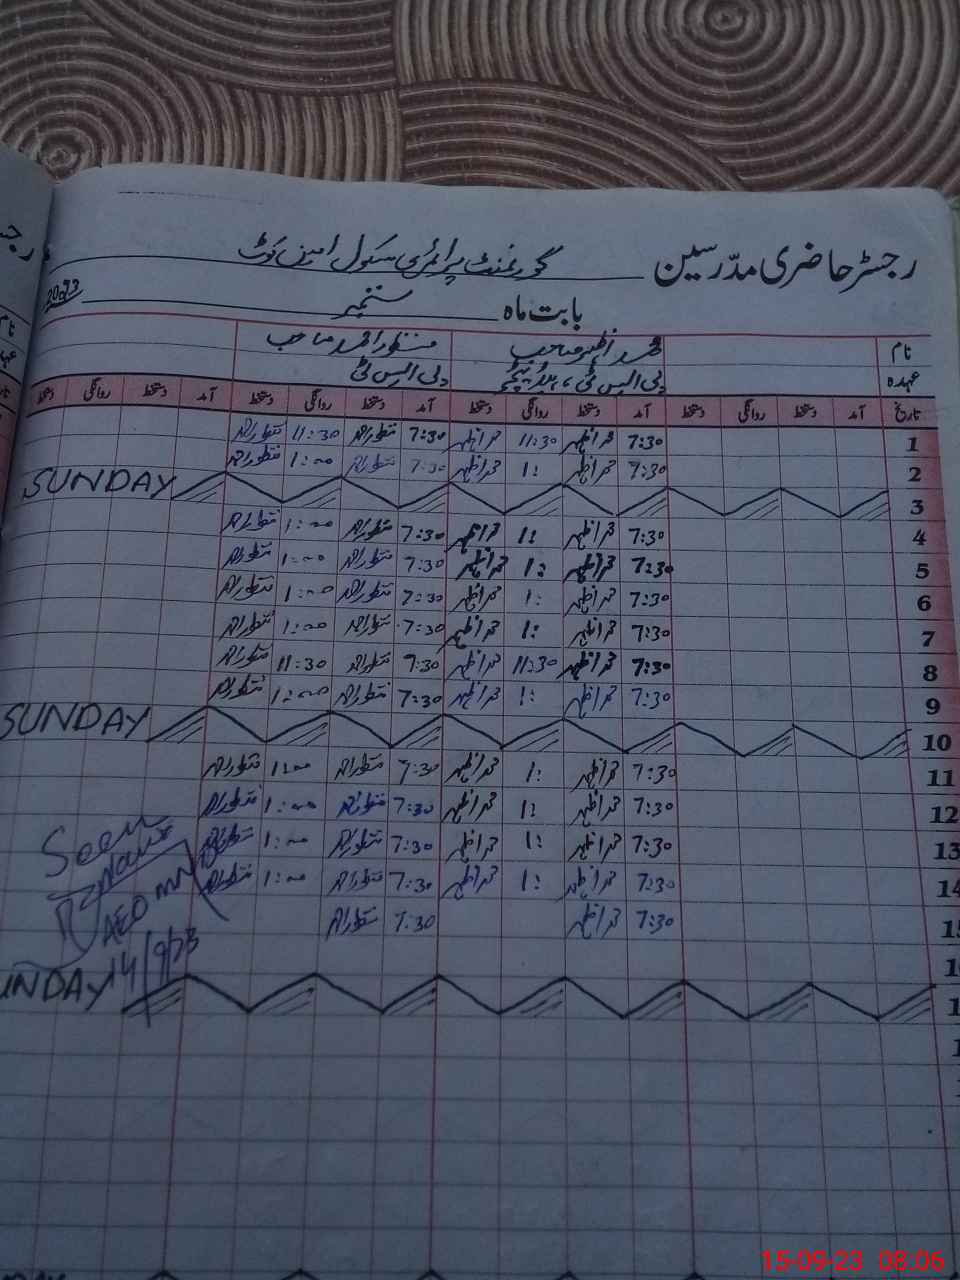 رجسٹر حاضری مدرسین گورنمنٹ پرائمری سکول امین کوٹ
بابت ماہ ستمبر 2023
نام محمد اظہر صاحب منظور احمد صاحب
عہدہ پی ایس ٹی، ہیڈ ٹیچر پی ایس ٹی
تاریخ آمد دستخط روانگی دستخط آمد دستخط روانگی دستخط آمد دستخط روانگی دستخط آمد دستخط روانگی دستخط
1 7:30 محمد اظہر 11:30 محمد اظہر 7:30 منظور احمد 11:30 منظور احمد
2 7:30 محمد اظہر 1: محمد اظہر 7:30 منظور احمد 1:00 منظور احمد
3 SUNDAY
4 7:30 محمد اظہر 1: محمد اظہر 7:30 منظور احمد 1:00 منظور احمد
5 7:30 محمد اظہر 1: محمد اظہر 7:30 منظور احمد 1:00 منظور احمد
6 7:30 محمد اظہر 1: محمد اظہر 7:30 منظور احمد 1:00 منظور احمد
7 7:30 محمد اظہر 1: محمد اظہر 7:30 منظور احمد 1:00 منظور احمد
8 7:30 محمد اظہر 11:30 محمد اظہر 7:30 منظور احمد 11:30 منظور احمد
9 7:30 محمد اظہر 1: محمد اظہر 7:30 منظور احمد 1:00 منظور احمد
10 SUNDAY
11 7:30 محمد اظہر 1: محمد اظہر 7:30 منظور احمد 1:00 منظور احمد
12 7:30 محمد اظہر 1: محمد اظہر 7:30 منظور احمد 1:00 منظور احمد
13 7:30 محمد اظہر 1: محمد اظہر 7:30 منظور احمد 1:00 منظور احمد
14 7:30 محمد اظہر 1: محمد اظہر 7:30 منظور احمد 1:00 منظور احمد
15 7:30 محمد اظہر 7:30 منظور احمد
Seen
AEO
14/9/23
UNDAY
15-09-23 08:06